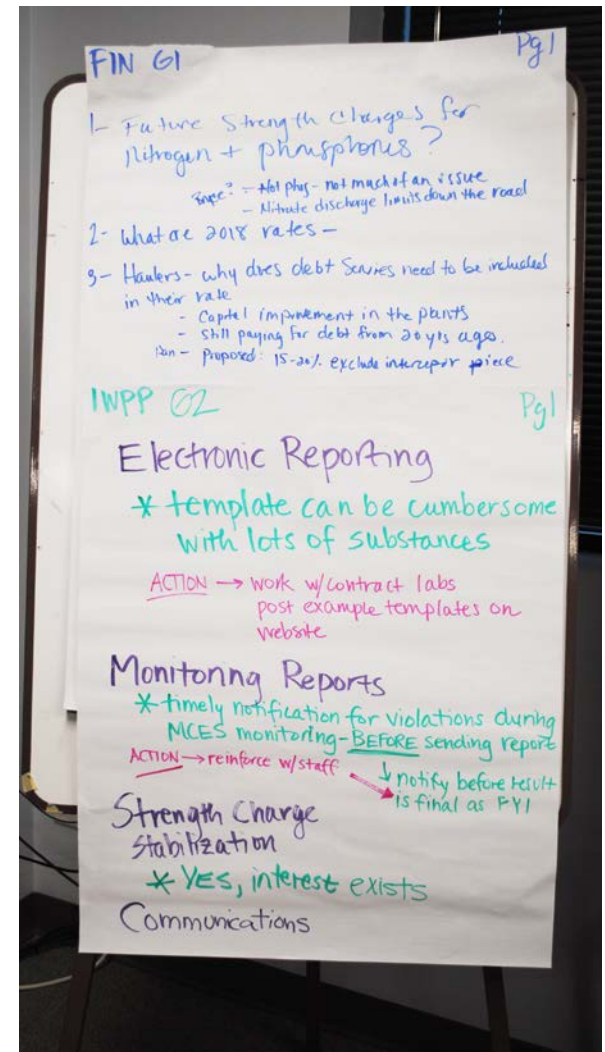 FIN G1 Pg1
1- Future Strength Charges for
Nitrogen + phosphorus?
- Not phos - not much of an issue
- Nitrate discharge limits down the road
2- What are 2018 rates -
3- Haulers - why does debt Servies need to be included
in their rate
- Capital improvement in the plants
- Still paying for debt from 20 yrs ago.
- Proposed: 15-20% exclude interceptor piece
IWPP G2 Pg1
Electronic Reporting
* template can be cumbersome
with lots of substances
ACTION → work w/contract labs
post example templates on
website
Monitoring Reports
* timely notification for violations during
MCES monitoring - BEFORE sending report
ACTION → reinforce w/staff
↓ notify before result
is final as FYI
Strength Charge
Stabilization
* YES, interest exists
Communications